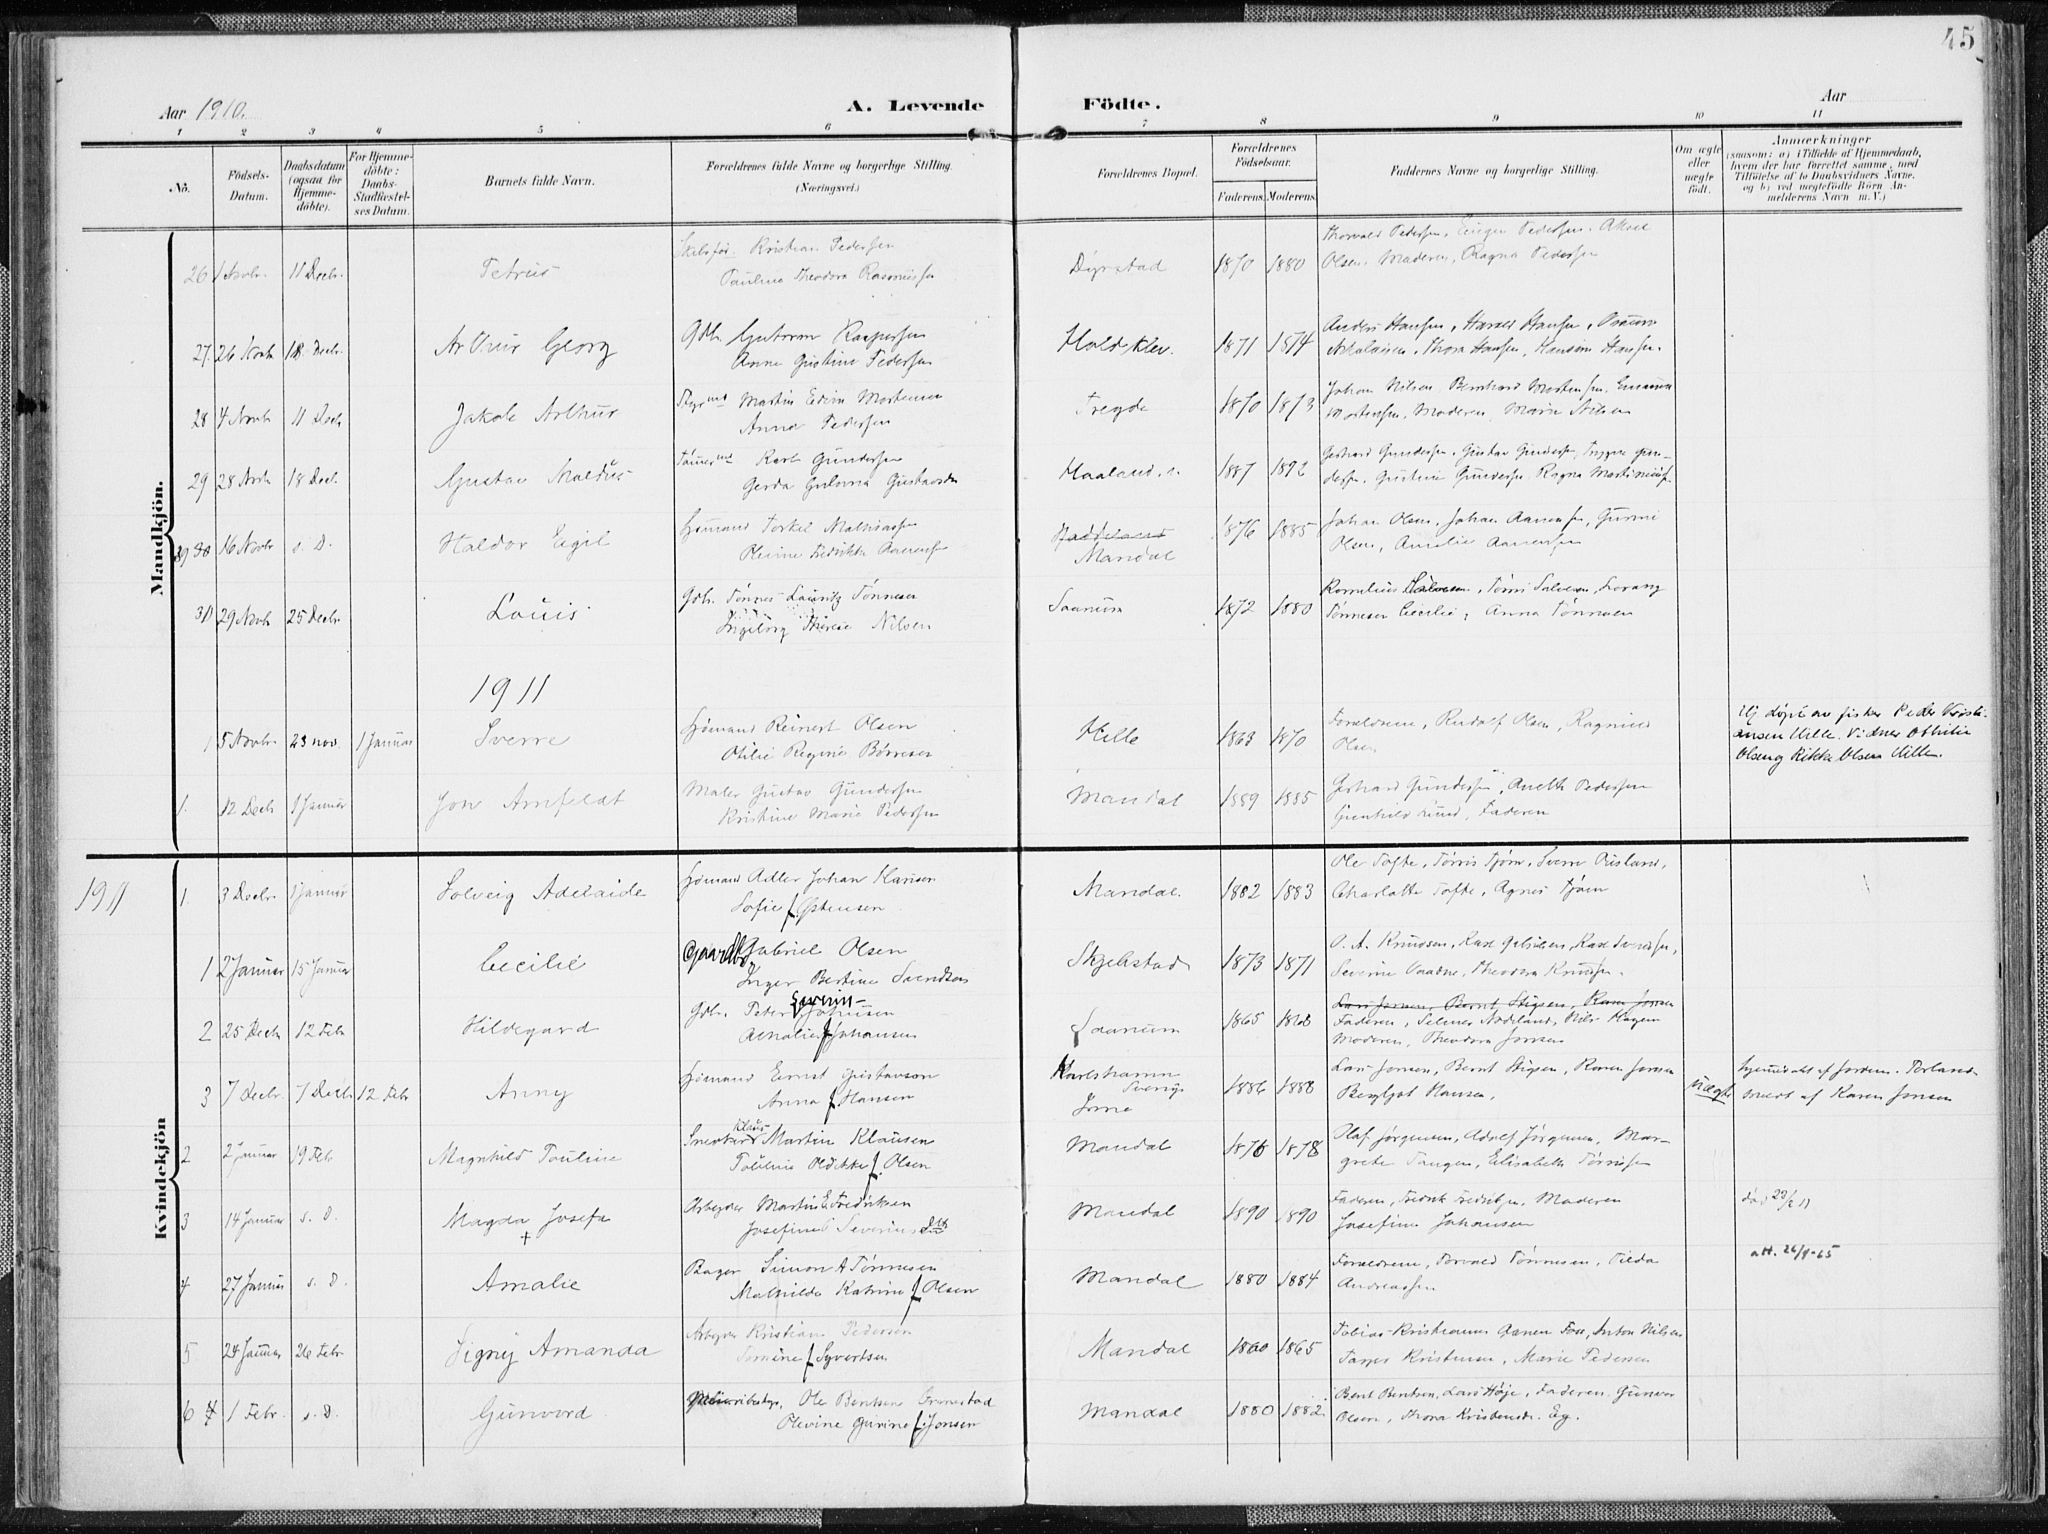 45
Aar 1910.
A. Levende Födte.
Aar
1 2 3 4 5 6 7 8 9 10 11
No.
Födsels-Datum.
Daabsdatum (ogsaa for Hjemme-döbte).
For Hjemme-döbte: Daabs-Stadfæstel-ses Datum.
Barnets fulde Navn.
Forældrenes fulde Navne og borgerlige Stilling.
(Næringsvei.)
Forældrenes Bopæl.
Forældrenes Födselsaar.
Faderens. Moderens.
Faddernes Navne og borgerlige Stilling.
Om ægte eller uægte födt.
Anmærkninger
(saasom: a) i Tilfælde af Hjemmedaab, hvem der har forrettet samme, med Tilföielse af to Daabsvidners Navne, og b) ved uægtefödte Börn An-melderens Navn m. V.)
Mandkjön.
26 1 Novbr. 11 Decbr. Petrus
Kristian Pedersen
Pauline Theodora Rasmussen
Dyrstad 1870 1880
Thorvald Pedersen, Pedersen. Aksel
Olsen. Moderen, Ragna Pedersen
27 26 Novbr 18 Decbr. Arthur Georg
Gdb. Guttorm Kaspersen
Anne Gustine Pedersen
Holdsklev. 1871 1874
Anders Hansen, Harald Hansen,
Nikolaisen, Thora Hansen, Hansine Hansen.
28 4 Novbr 11 Decb Jakob Arthur
Styrmd Martin Edvin Mortensen
Anna Pedersen
Tregde 1870 1873
Johan Nilsen Bernhard Mortensen,
Mortensen, Moderen, Marie Nilsen
29 28 Novbr 18 Decb. Gustav Maldus
Tømmermd Karl Gundersen
Gerda Gulovna Gustavsdtr
Haaland. 1887 1892
Gerhard Gundersen, Gustav Gundersen, Trygve Gun-
dersen. Gustine Gundersen Ragna Martiniusen
30 16 Novbr s. D. Haldor Egil
Sjømand Torkel Mathiassen
Olevine Fredrikke Aanensen
Mandal 1876 1885
Johan Olsen, Johan Aanensen, Gurine
Olsen, Amalie Aanensen
31 29 Novbr 25 Decbr. Louis
Gdb. Tønnes Lauritz Tønnesen
Ingeborg Therese Nilsen
Saanum 1872 1880
Kornelius Salvesen, Tønnes Salvesen, Lovang
Tønnesen Cecilie, Anna Tønnesen
1911
1 5 Novbr. 23 nov. 1 Januar Sverre
Sjømand Reinert Olsen
Otilie Regine Børresen
Hille 1863 1870
Forældrene, Rudolf Olsen, Ragnild
Olsen
Hj døpt av fisker Peder Kristi-
ansen Hille. Vidner Othilie
Olsen og Rikke Olsen Hille.
1. 12 Decb 1 Januar Jon Arnfeldt
Maler Gustav Gundersen
Kristine Marie Pedersen
Mandal 1889 1885
Gerhard Gundersen, Aneth Pedersen
Gunhild Lund, Faderen
Kvindekjön
1911
1 3 Decbr. 1 Januar Solveig Adelaide
Sjømand Adler Johan Hansen
Sofie f. Østensen
Mandal. 1882 1883
Ole Tofte, Tørris Tjøm, Sverre Risland,
Charlotte Tofte, Agnes Tjøm
1 2 Januar 15 Januar Cecilie
Gaardb Gabriel Olsen
Inger Bertine Svendsen
Skjebstad 1873 1871
O. A. Knudsen, Karl Gabrielsen, Karl Svendsen,
Severine Vaadne, Theodora Knudsen.
2 25 Decbr 12 Febr Hildegard
Gdb. Peter Severin Johnsen
Amalie f. Johansen
Saanum 1865 1868
Lars Jonsen, Bernt Stigsen, Karen Jonsen
Faderen, Selmer Nodeland, Nils Hagen
Moderen, Theodora Jonsen
3 7 Decbr. 7 Decbr. 12 Febr Anny
Sjømand Ernst Gustavson
Anna f. Hansen
Karlshamn
Sverige
Jome
1886 1888
Lars Jonsen, Bernt Stigsen, Karen Jonsen
Bergljot Hansen,
Uægte
hjemmedøbt af Jordem. Torland-
anmeldt af Karen Jonsen
2 2 Januar 19 Febr Magnhild Pouline
Snedker Klaus Martin Klausen
Pouline Oldikke f. Olsen
Mandal 1876 1878
Olaf Jørgensen, Adolf Jørgensen, Mar-
grete Tangen, Elisabeth Tønnesen
3 14 Januar s. D. Magda Josefa
+
Arbeyder Martin E Fredriksen
Josefine Severinsdtr
Mandal 1890 1890
Faderen, Fredrik Fredriksen, Moderen
Josefine Johansen
død 23/2 11
4 27 Januar s. D. Amalie
Bager Simon A Tønnesen
Mathilde Katrine f. Olsen
Mandal 1880 1884
Forældrene, Torvald Tønnesen, Tilda
Andreassen
att. 26/8-65
5 24 Januar 26 Febr. Signy Amanda
Arbeyder Kristian Pedersen
Tomine f. Syvertsen
Mandal 1860 1865
Tobias Kristensen Aanen Foss, Anton Nilsen
Kristensen, Marie Pedersen
6 1 Febr. s. D. Gunvord
Ole Bentsen Grimestad
Olevine Gurine f. Jonsen
Mandal 1880 1882
Bent Bentsen, Lars Høje, Faderen. Gunvor
Olsen, Thora Kristensdr. Eg.